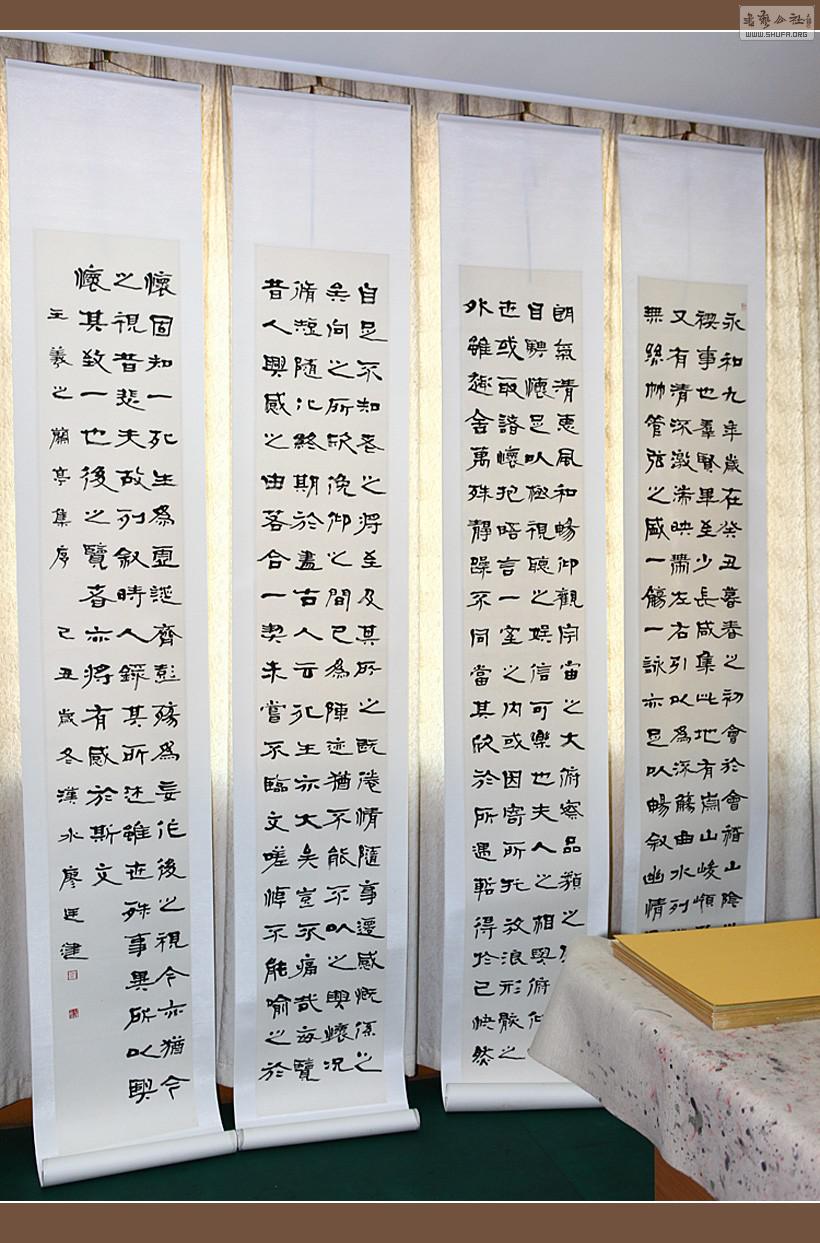 書藝公社
WWW.SHUFA.ORG
永和九年歲在癸丑暮春之初會於會稽山陰
禊事也羣賢畢至少長咸集此地有崇山峻領
又有清流激湍映帶左右引以為流觴曲水列
無絲竹管弦之盛一觴一詠亦足以暢敘幽情
朗氣清惠風和暢仰觀宇宙之大俯察品類之
目騁懷足以極視聽之娛信可樂也夫人之相與俯仰
世或取諸懷抱晤言一室之內或因寄所託放浪形骸之
外雖趣舍萬殊靜躁不同當其欣於所遇暫得於己快然
自足不知老之將至及其所之既倦情隨事遷感慨係之
矣向之所欣俛仰之間已為陳迹猶不能不以之興懷況
脩短隨化終期於盡古人云死生亦大矣豈不痛哉每覽
昔人興感之由若合一契未嘗不臨文嗟悼不能喻之於
懷固知一死生為虛誕齊彭殤為妄作後之視今亦猶今
之視昔悲夫故列敘時人錄其所述雖世殊事異所以興
懷其致一也後之覽者亦將有感於斯文
王羲之蘭亭集序 己丑歲冬漢水廖廷建